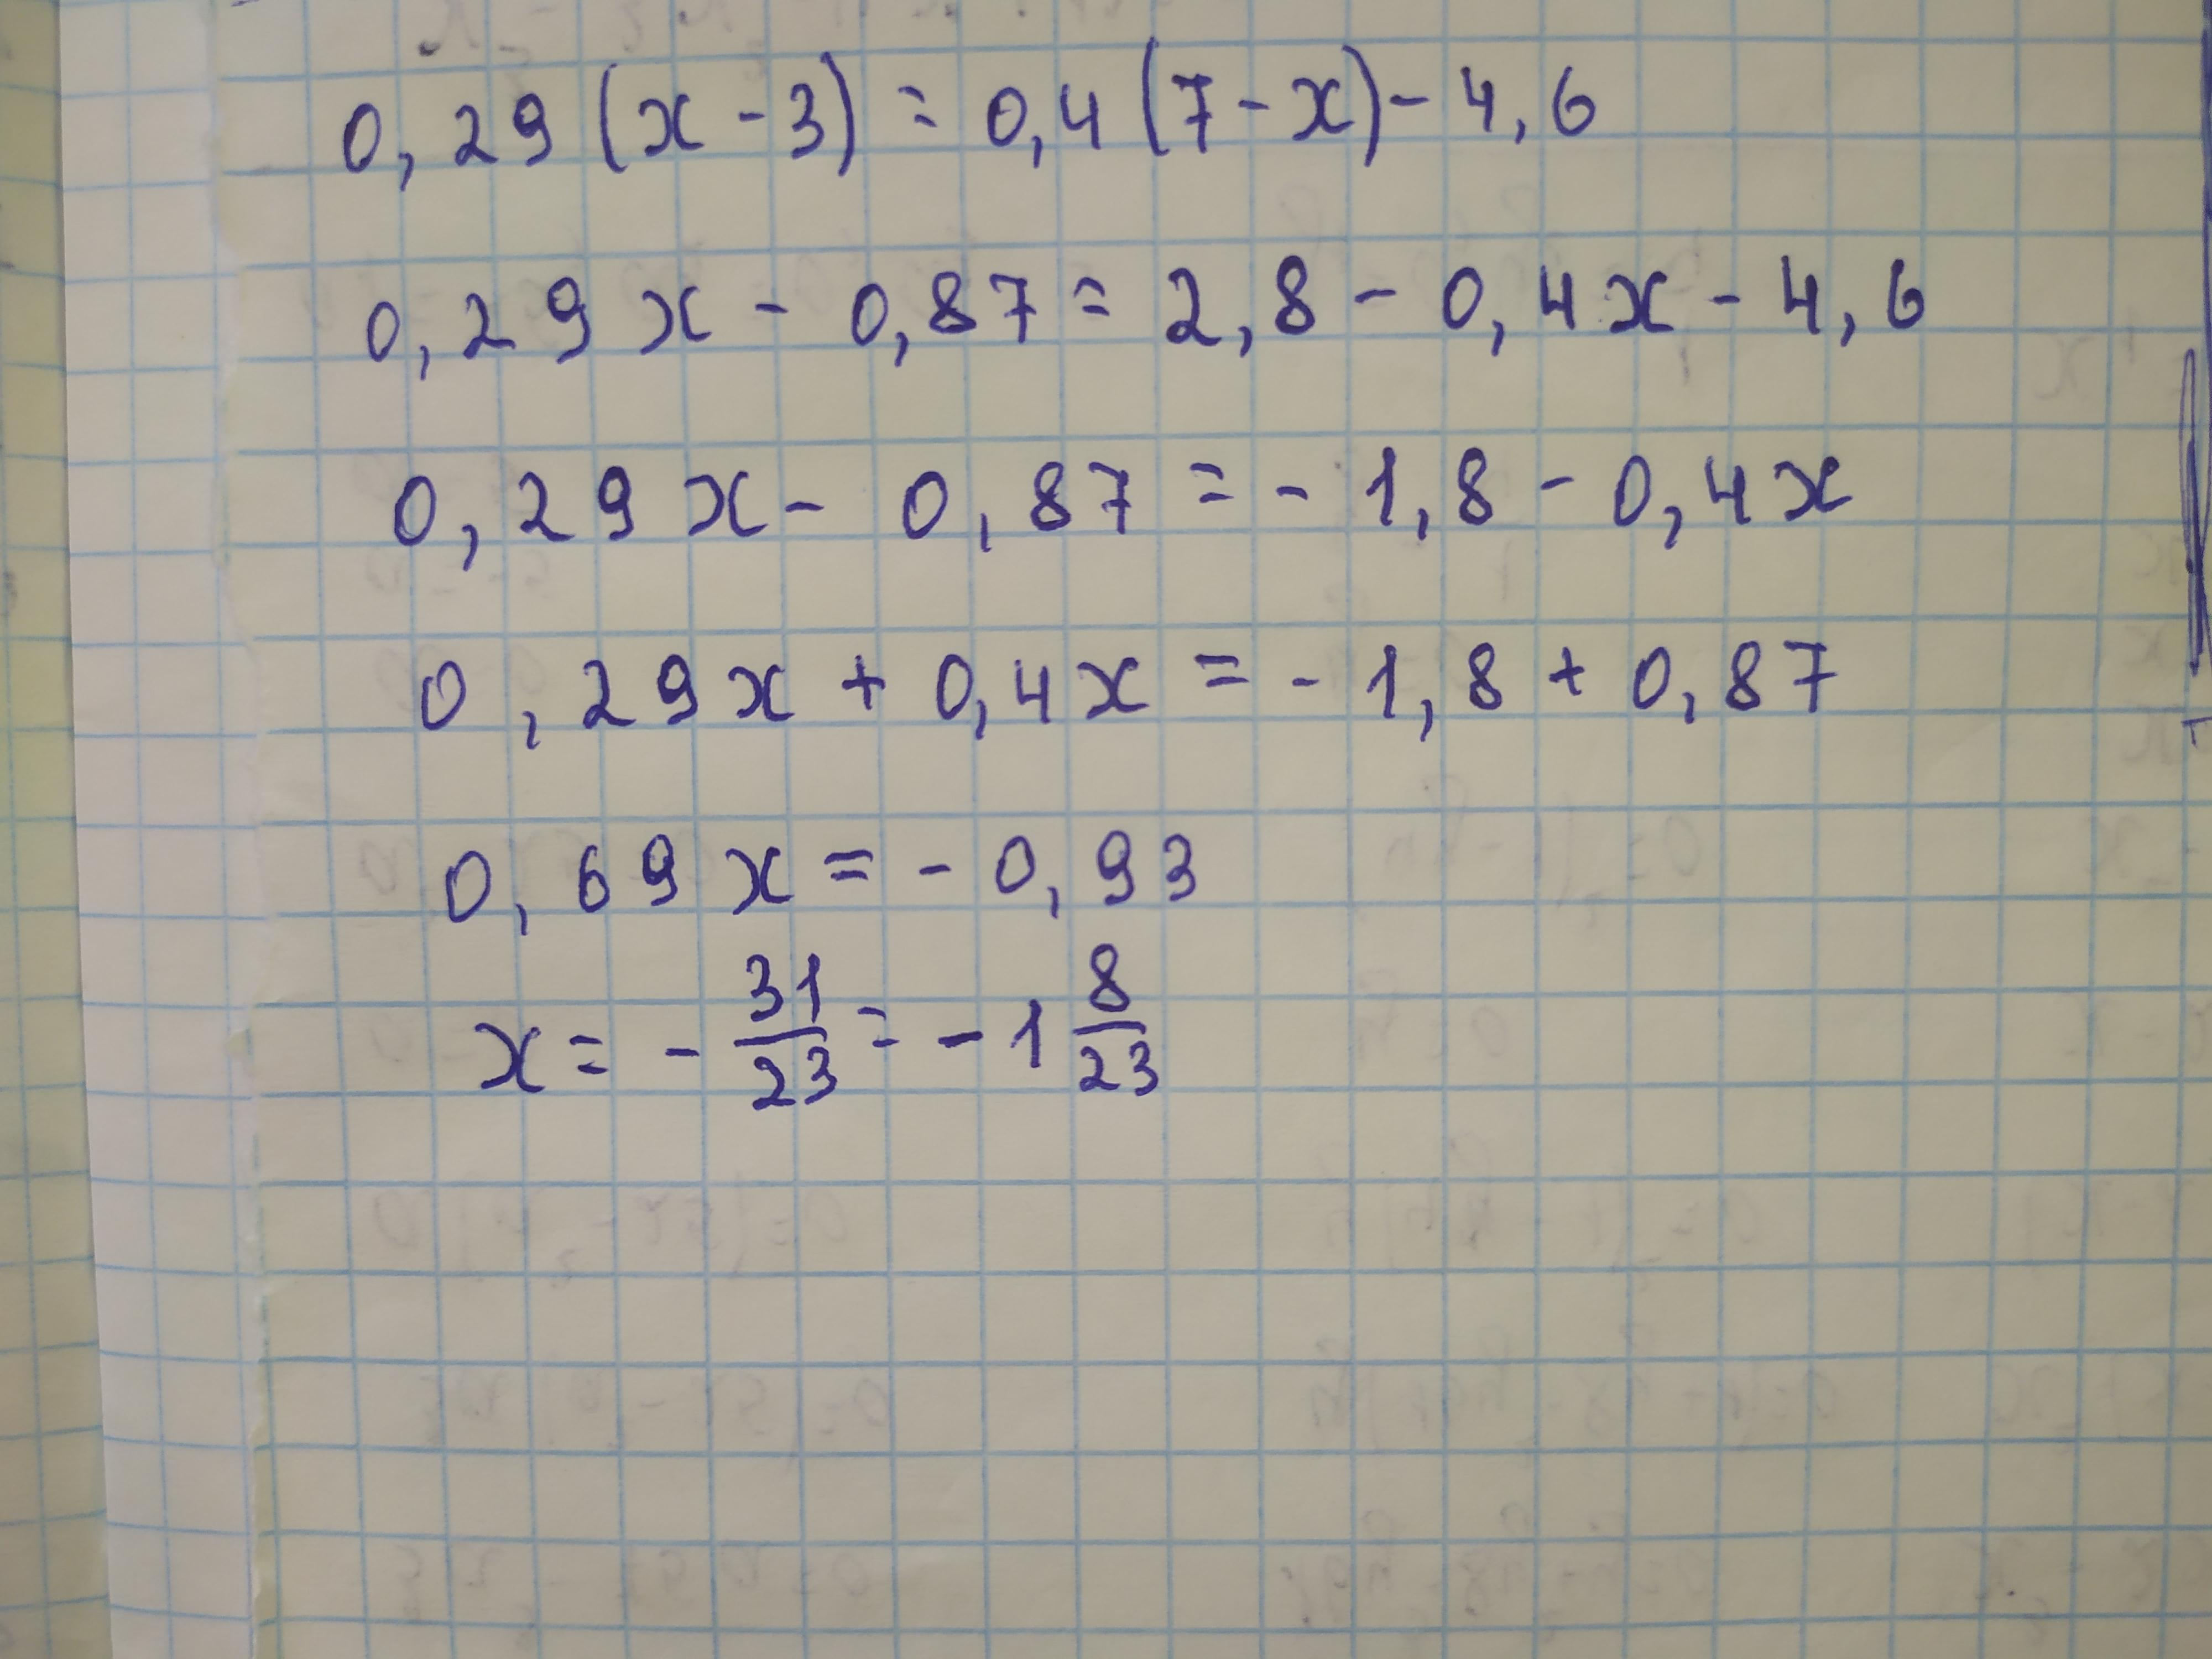 0,29(x-3)=0,4(7-x)-4,6
0,29x-0,87=2,8-0,4x-4,6
0,29x-0,87=-1,8-0,4x
0,29x+0,4x=-1,8+0,87
0,69x=-0,93
x=-31/23=-1 8/23